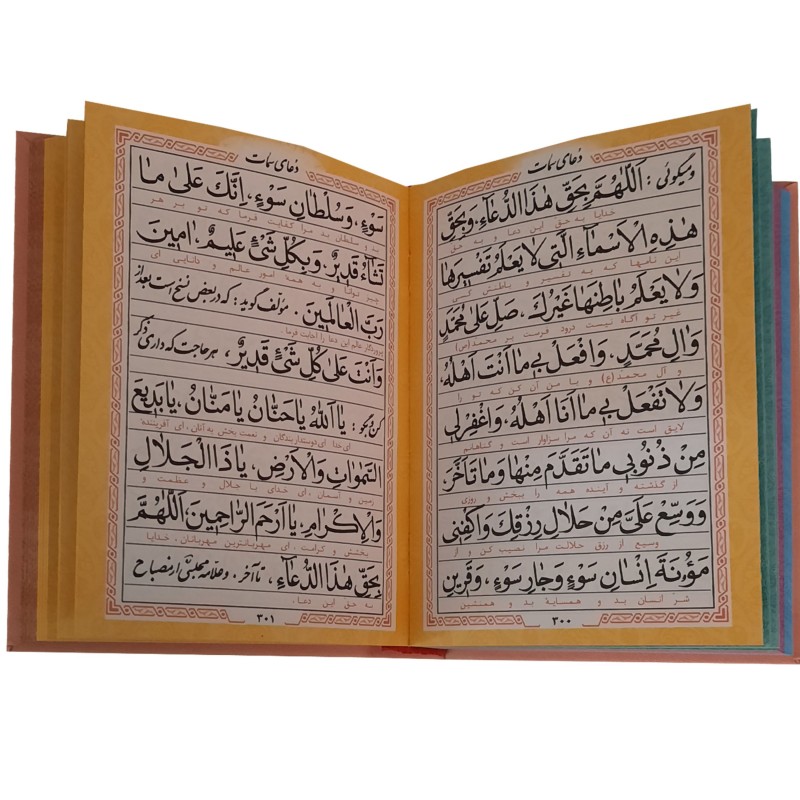 دعای سمات
و میگوئی: اَللّٰهُمَّ بِحَقِّ هٰذَا الدُّعَاءِ، وَبِحَقِّ
خدایا به حق این دعا و به حق
هٰذِهِ الْاَسْمَاءِ الَّتی لایَعْلَمُ تَفْسیرَهَا
این نامهها که به تفسیر و باطنش کسی
وَلایَعْلَمُ باطِنَها غَیْرُكَ، صَلِّ عَلیٰ مُحَمَّدٍ
غیر تو آگاه نیست درود فرست بر محمد(ص)
وَالِ مُحَمَّدٍ، وَافْعَلْ بی ما اَنْتَ اَهْلُهُ،
و آل محمد(ع) و با من آن کن که تو را
وَلاتَفْعَلْ بی ما اَنَا اَهْلُهُ، وَاغْفِرْلی
لایق است نه آن که مرا سزاوار است و گناهانم
مِنْ ذُنُوبی ما تَقَدَّمَ مِنْها وَما تَاَخَّرَ،
از گذشته و آینده همه را ببخش و روزی
وَوَسِّعْ عَلَیَّ مِنْ حَلالِ رِزْقِكَ وَاكْفِنی
وسیع از رزق حلالت مرا نصیب کن و از
مَؤُنَةَ اِنْسانِ سَوْءٍ وَجارِ سَوْءٍ، وَقَرینِ
شر انسان بد و همسایهٔ بد و همنشین
۳۰۰
دعای سمات
سَوْءٍ، وَسُلْطانِ سَوْءٍ، اِنَّكَ عَلیٰ ما
بد و سلطان بد مرا کفایت فرما که تو بر هر
تَشاءُ قَدیرٌ، وَبِكُلِّ شَیْءٍ عَلیمٌ، امینَ
چیز توانا و به همه امور عالم و دانایی ای
رَبَّ الْعالَمینَ. مؤلف گوید: که در بعض نسخ است بعد از
پروردگار عالم این دعا را اجابت فرما.
وَاَنْتَ عَلیٰ كُلِّ شَیْءٍ قَدیرٌ، هر حاجت که داری ذکر
کن و بگو: یا اَللّٰهُ یا حَنّانُ یا مَنّانُ، یا بَدیعَ
ای خدا ای دوستدار بندگان و نعمت بخش به آنان، ای آفریننده
السَّمٰواتِ وَالْاَرْضِ، یا ذَاالْجَلالِ
زمین و آسمان، ای خدای با جلال و عظمت و
وَالْاِكْرامِ، یا اَرْحَمَ الرّاحِمینَ، اَللّٰهُمَّ
بخشش و کرامت، ای مهربانترین مهربانان، خدایا
بِحَقِّ هٰذَا الدُّعَاءِ، تا آخر، و علامه مجلسی از مصباح
به حق این دعا،
۳۰۱